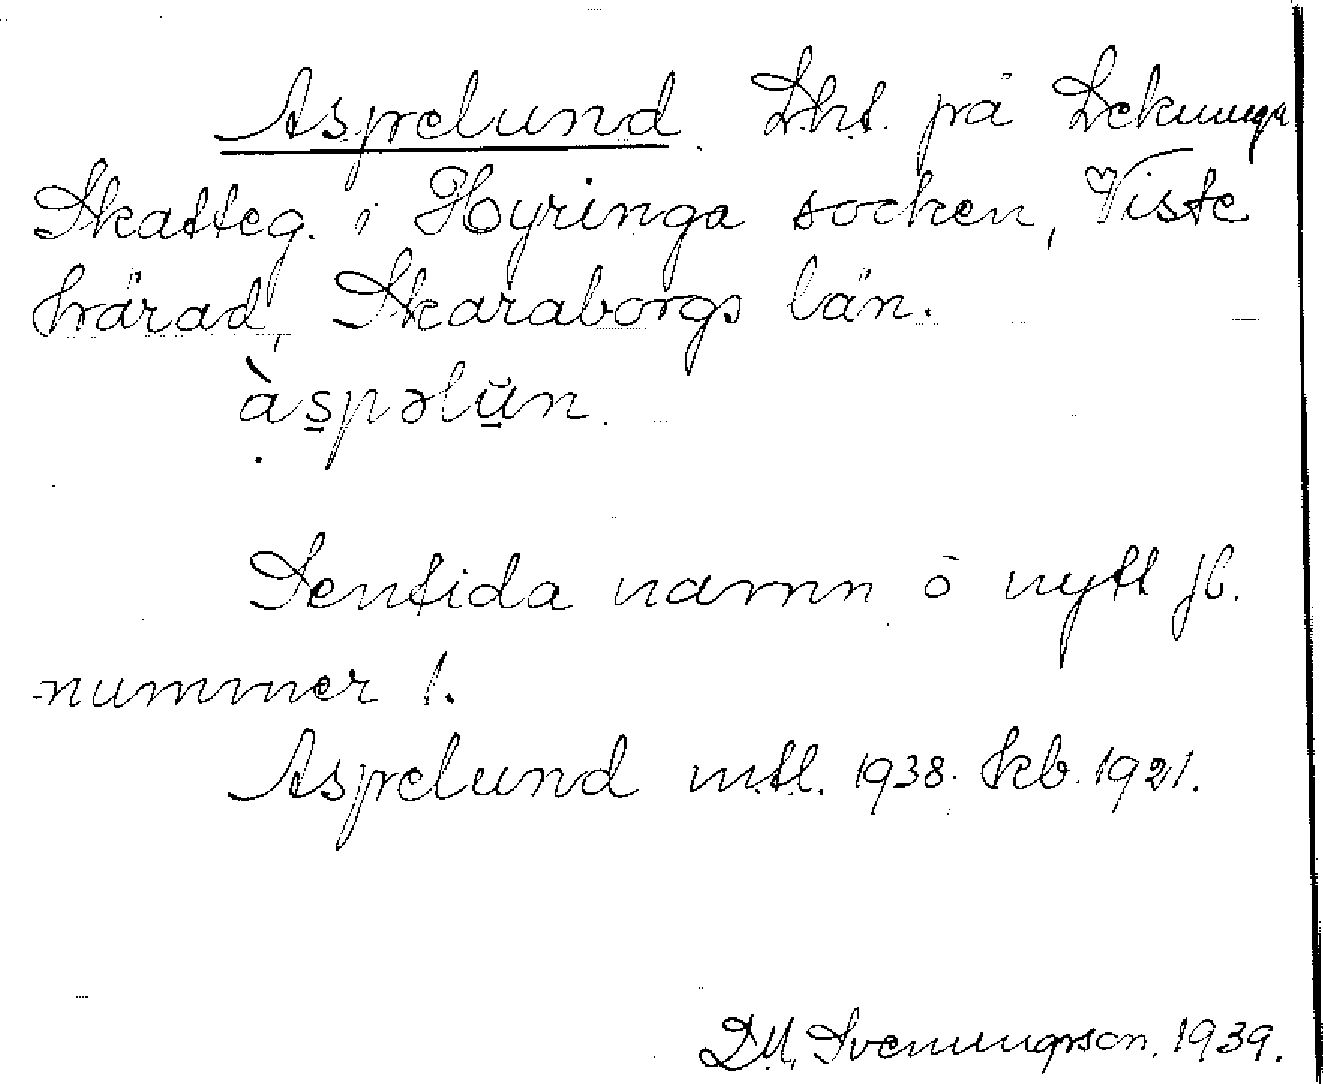 Aspelund. Lht. på Dekunga
Skatteg. i Hyringa socken, Viste
härad, Skaraborgs län.
àspəlŭn.
Sentida namn å nytt jb.
-nummer 1.
Aspelund mtl. 1938. kb. 1921.
D.U. Svenungsson. 1939.